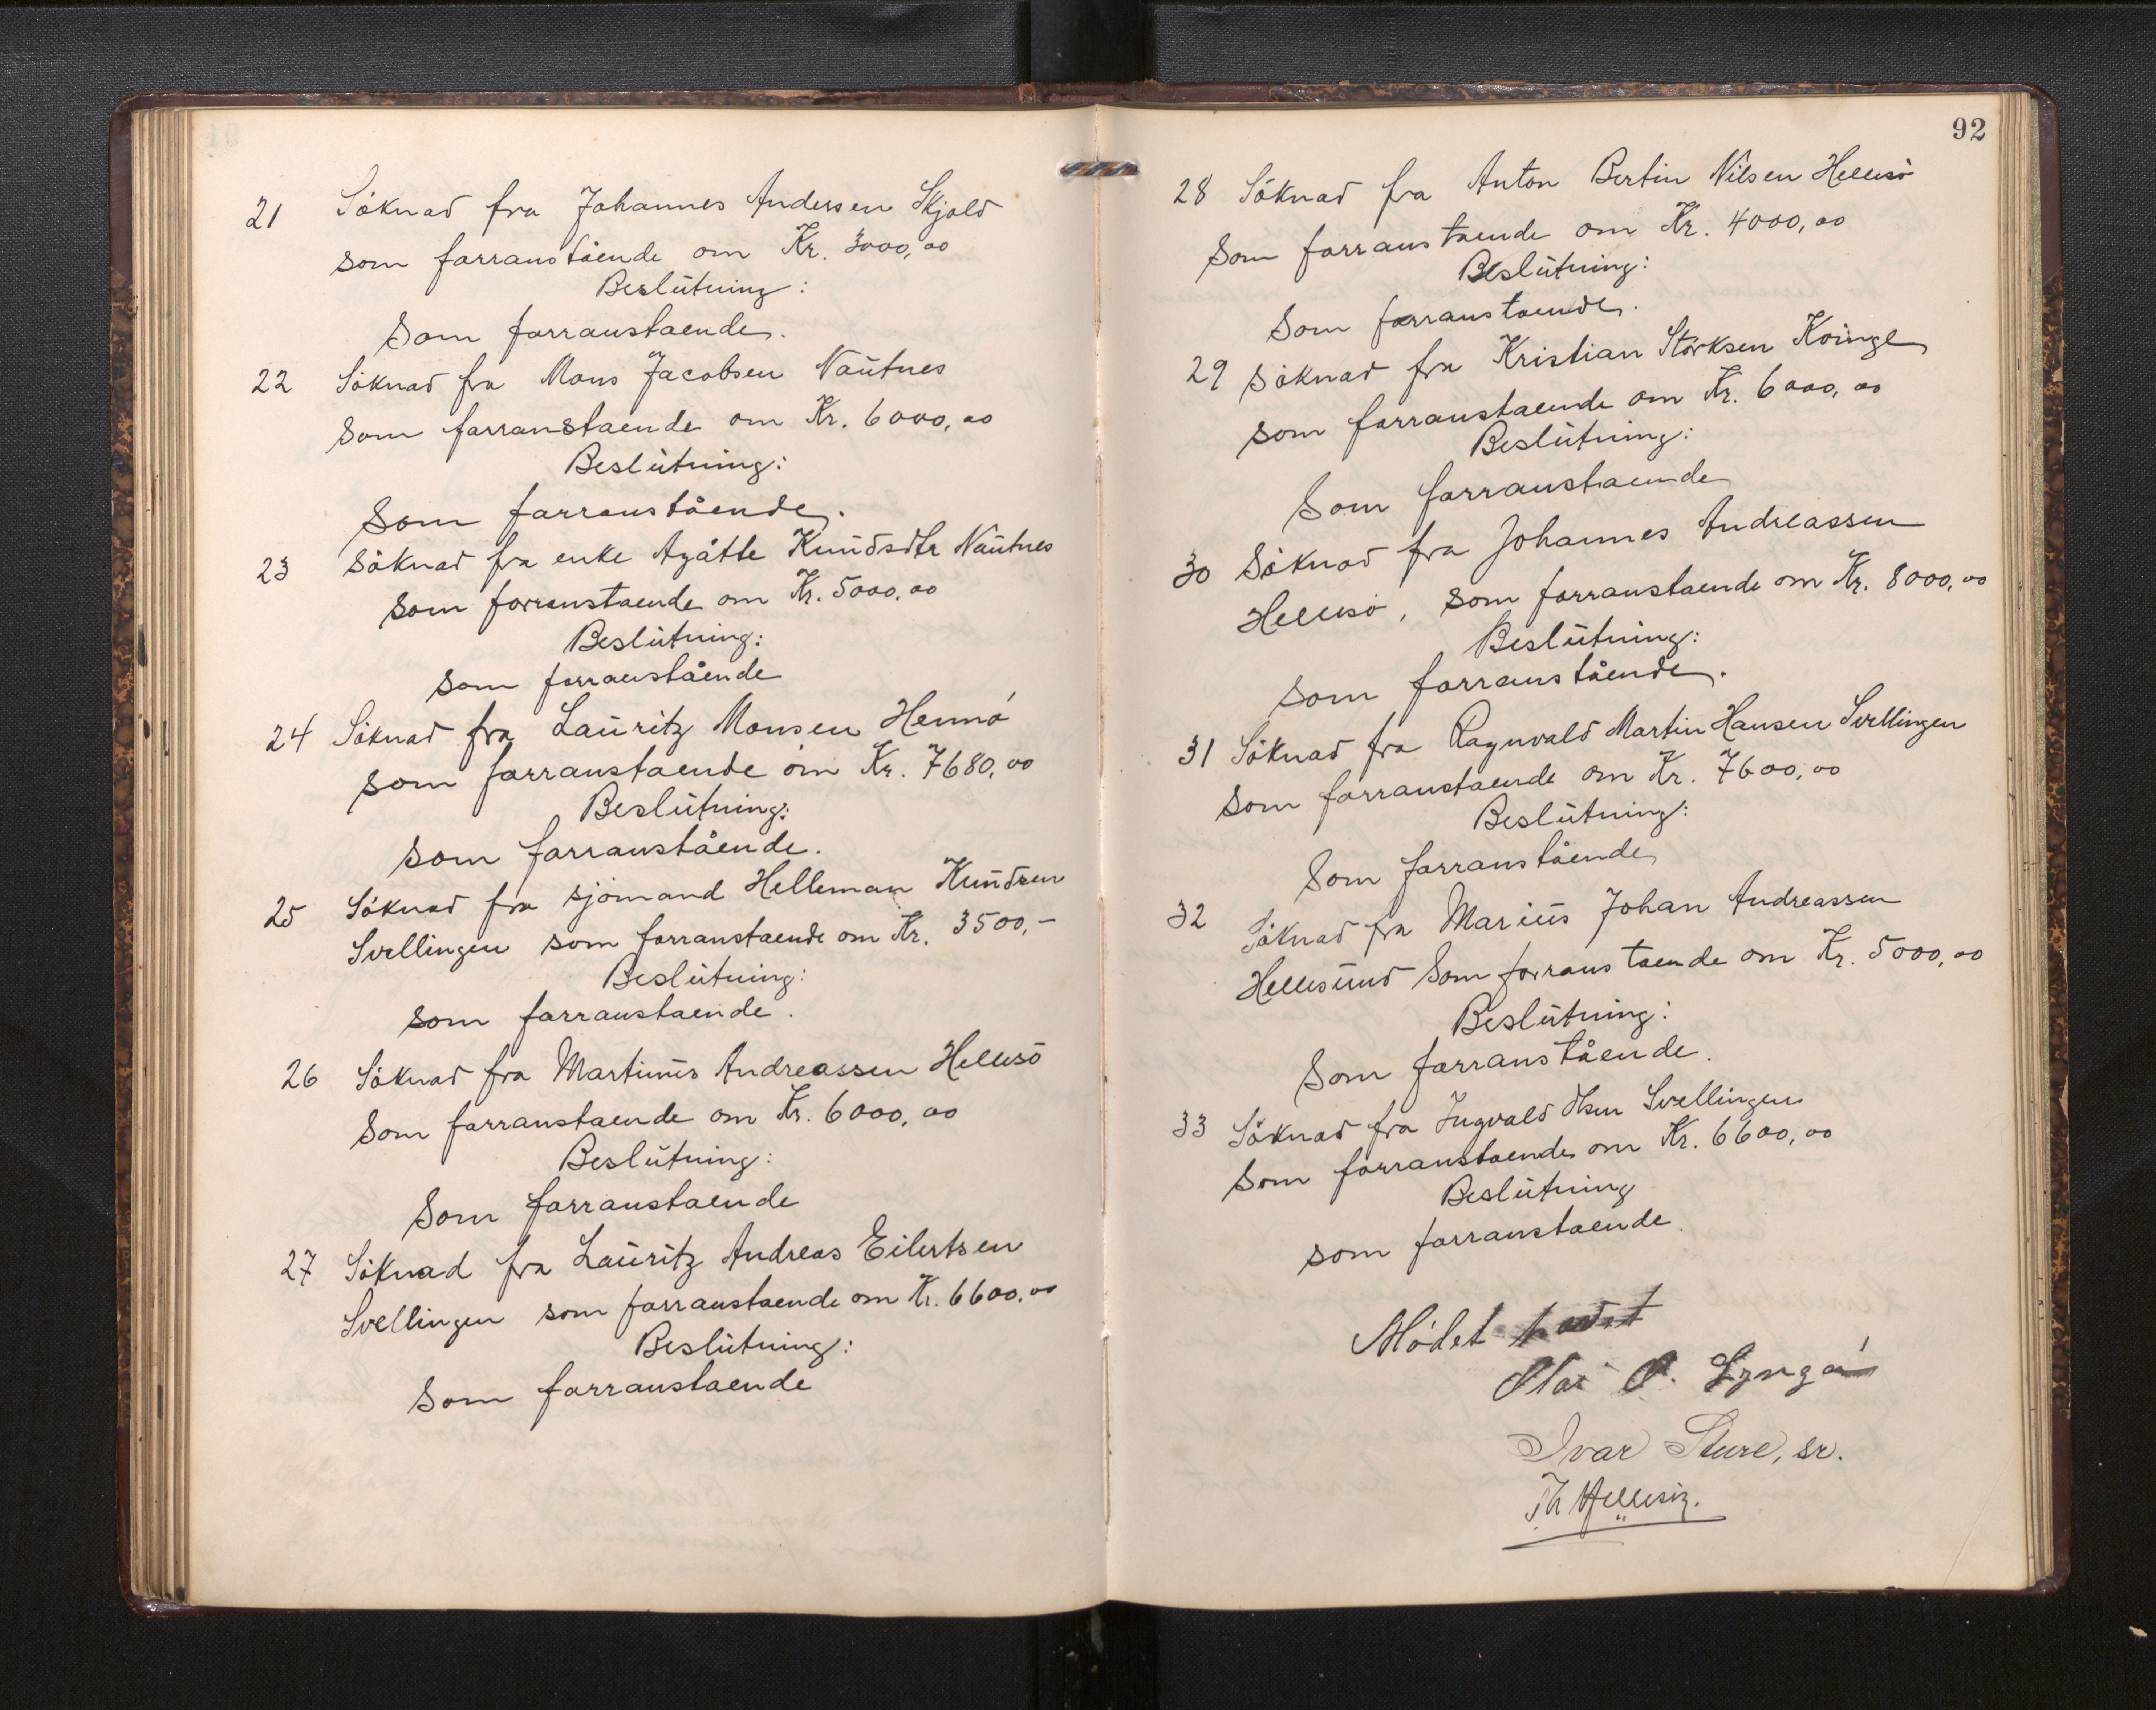 21 Söknad fra Johannes Andersen Skjold
som forranstående om Kr. 3000,00
Beslutning:
Som forranstaende.
22 Söknad fra Mons Jacobsen Nautnes
Som forranstaende om Kr. 6000,00
Beslutning:
Som forranstående.
23 Söknad fra enke Agåtte Knudsdtr Nautnes
som forranstaende om Kr. 5000,00
Beslutning:
som forranstående
24 Söknad fra Lauritz Monsen Hernö
som forranstaende om Kr. 7680,00
Beslutning:
som forranstående.
25 Söknad fra sjömand Helleman Knudsen
Svellingen som forranstaende om Kr. 3500,-
Beslutning:
som forranstaende.
26 Söknad fra Martinus Andreassen Hellesö
Som forranstaende om Kr. 6000,00
Beslutning:
Som forranstaende
27 Söknad fra Lauritz Andreas Eilertsen
Svellingen som forranstaende om Kr. 6600,00
Beslutning:
Som forranstaende
92
28 Söknad fra Anton Bertin Nilsen Hellesö
Som forranstaende om Kr. 4000,00
Beslutning:
Som forranstaende.
29 Söknad fra Kristian Störksen Koinge
som forranstaende om Kr. 6000,00
Beslutning:
Som forranstaende
30 Söknad fra Johannes Andreassen
Hellesö, som forranstaende om Kr. 8000,00
Beslutning:
som forranstående.
31 Söknad fra Ragnvald Martin Hansen Svellingen
Som forranstaende om Kr. 7600,00
Beslutning:
Som forranstående
32 Söknad fra Marius Johan Andreassen
Hellesund Som forranstaende om Kr. 5000,00
Beslutning:
Som forranstående.
33 Söknad fra Ingvald Olsen Svellingen
Som forranstaende om Kr. 6600,00
Beslutning
som forranstaende.
Mödet hævet
Olai O. Lyngö
Ivar Sture, sr.
Th Hellesö.